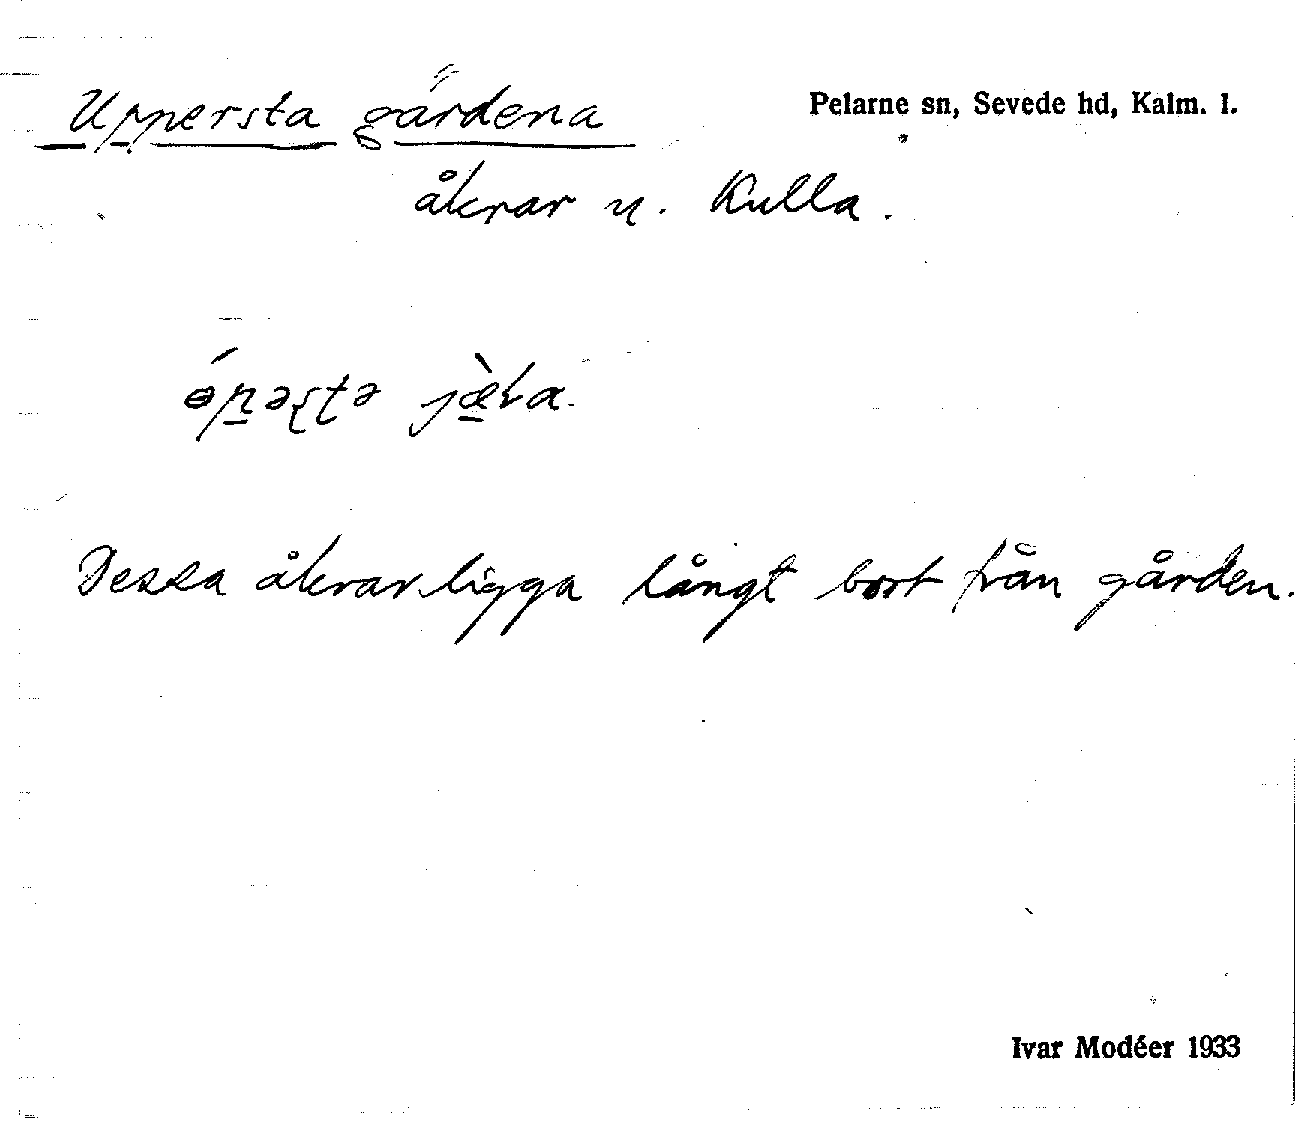 Uppersta gärdena
Pelarne sn, Sevede hd, Kalm. l.
åkrar u. Kulla.
Dessa åkrar ligga långt bort från gården.
Ivar Modéer 1933